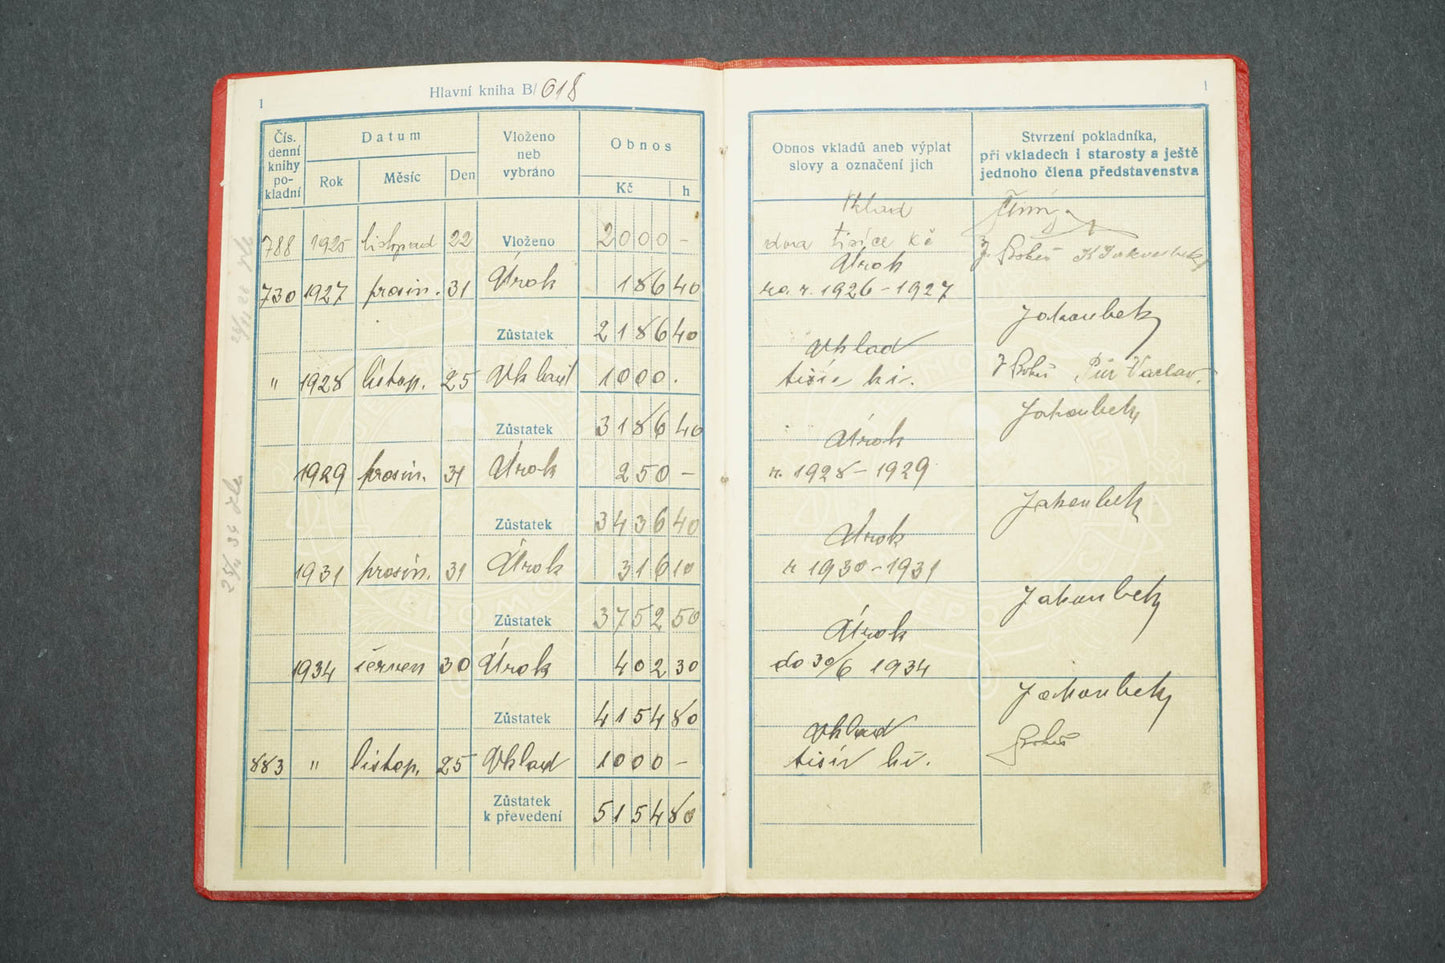 1
Hlavní kniha B/ 618
Čís. denní knihy po-kladní
Datum
Rok Měsíc Den
Vloženo neb vybráno
Obnos
Kč h
788 1925 listopad 22 Vloženo 2000 –
730 1927 prosin. 31 Úrok 186 40
Zůstatek 2186 40
" 1928 listop. 25 Vklad 1000 .
Zůstatek 3186 40
1929 prosin. 31 Úrok 250 –
Zůstatek 3436 40
1931 prosin. 31 Úrok 316 10
Zůstatek 3752 50
1934 červen 30 Úrok 402 30
Zůstatek 4154 80
883 " listop. 25 Vklad 1000 –
Zůstatek
k převedení 5154 80
1
Obnos vkladů aneb výplat
slovy a označení jich
Stvrzení pokladníka,
při vkladech i starosty a ještě
jednoho člena představenstva
Vklad
dva tisíce Kč
Úrok
za r. 1926 – 1927
Jakoubek
Vklad
tisíc kč.
Václav.
Jakoubek
Úrok
r. 1928 – 1929
Jakoubek
Úrok
r 1930 – 1931
Jakoubek
Úrok
do 30/6 1934
Jakoubek
Vklad
tisíc kč.